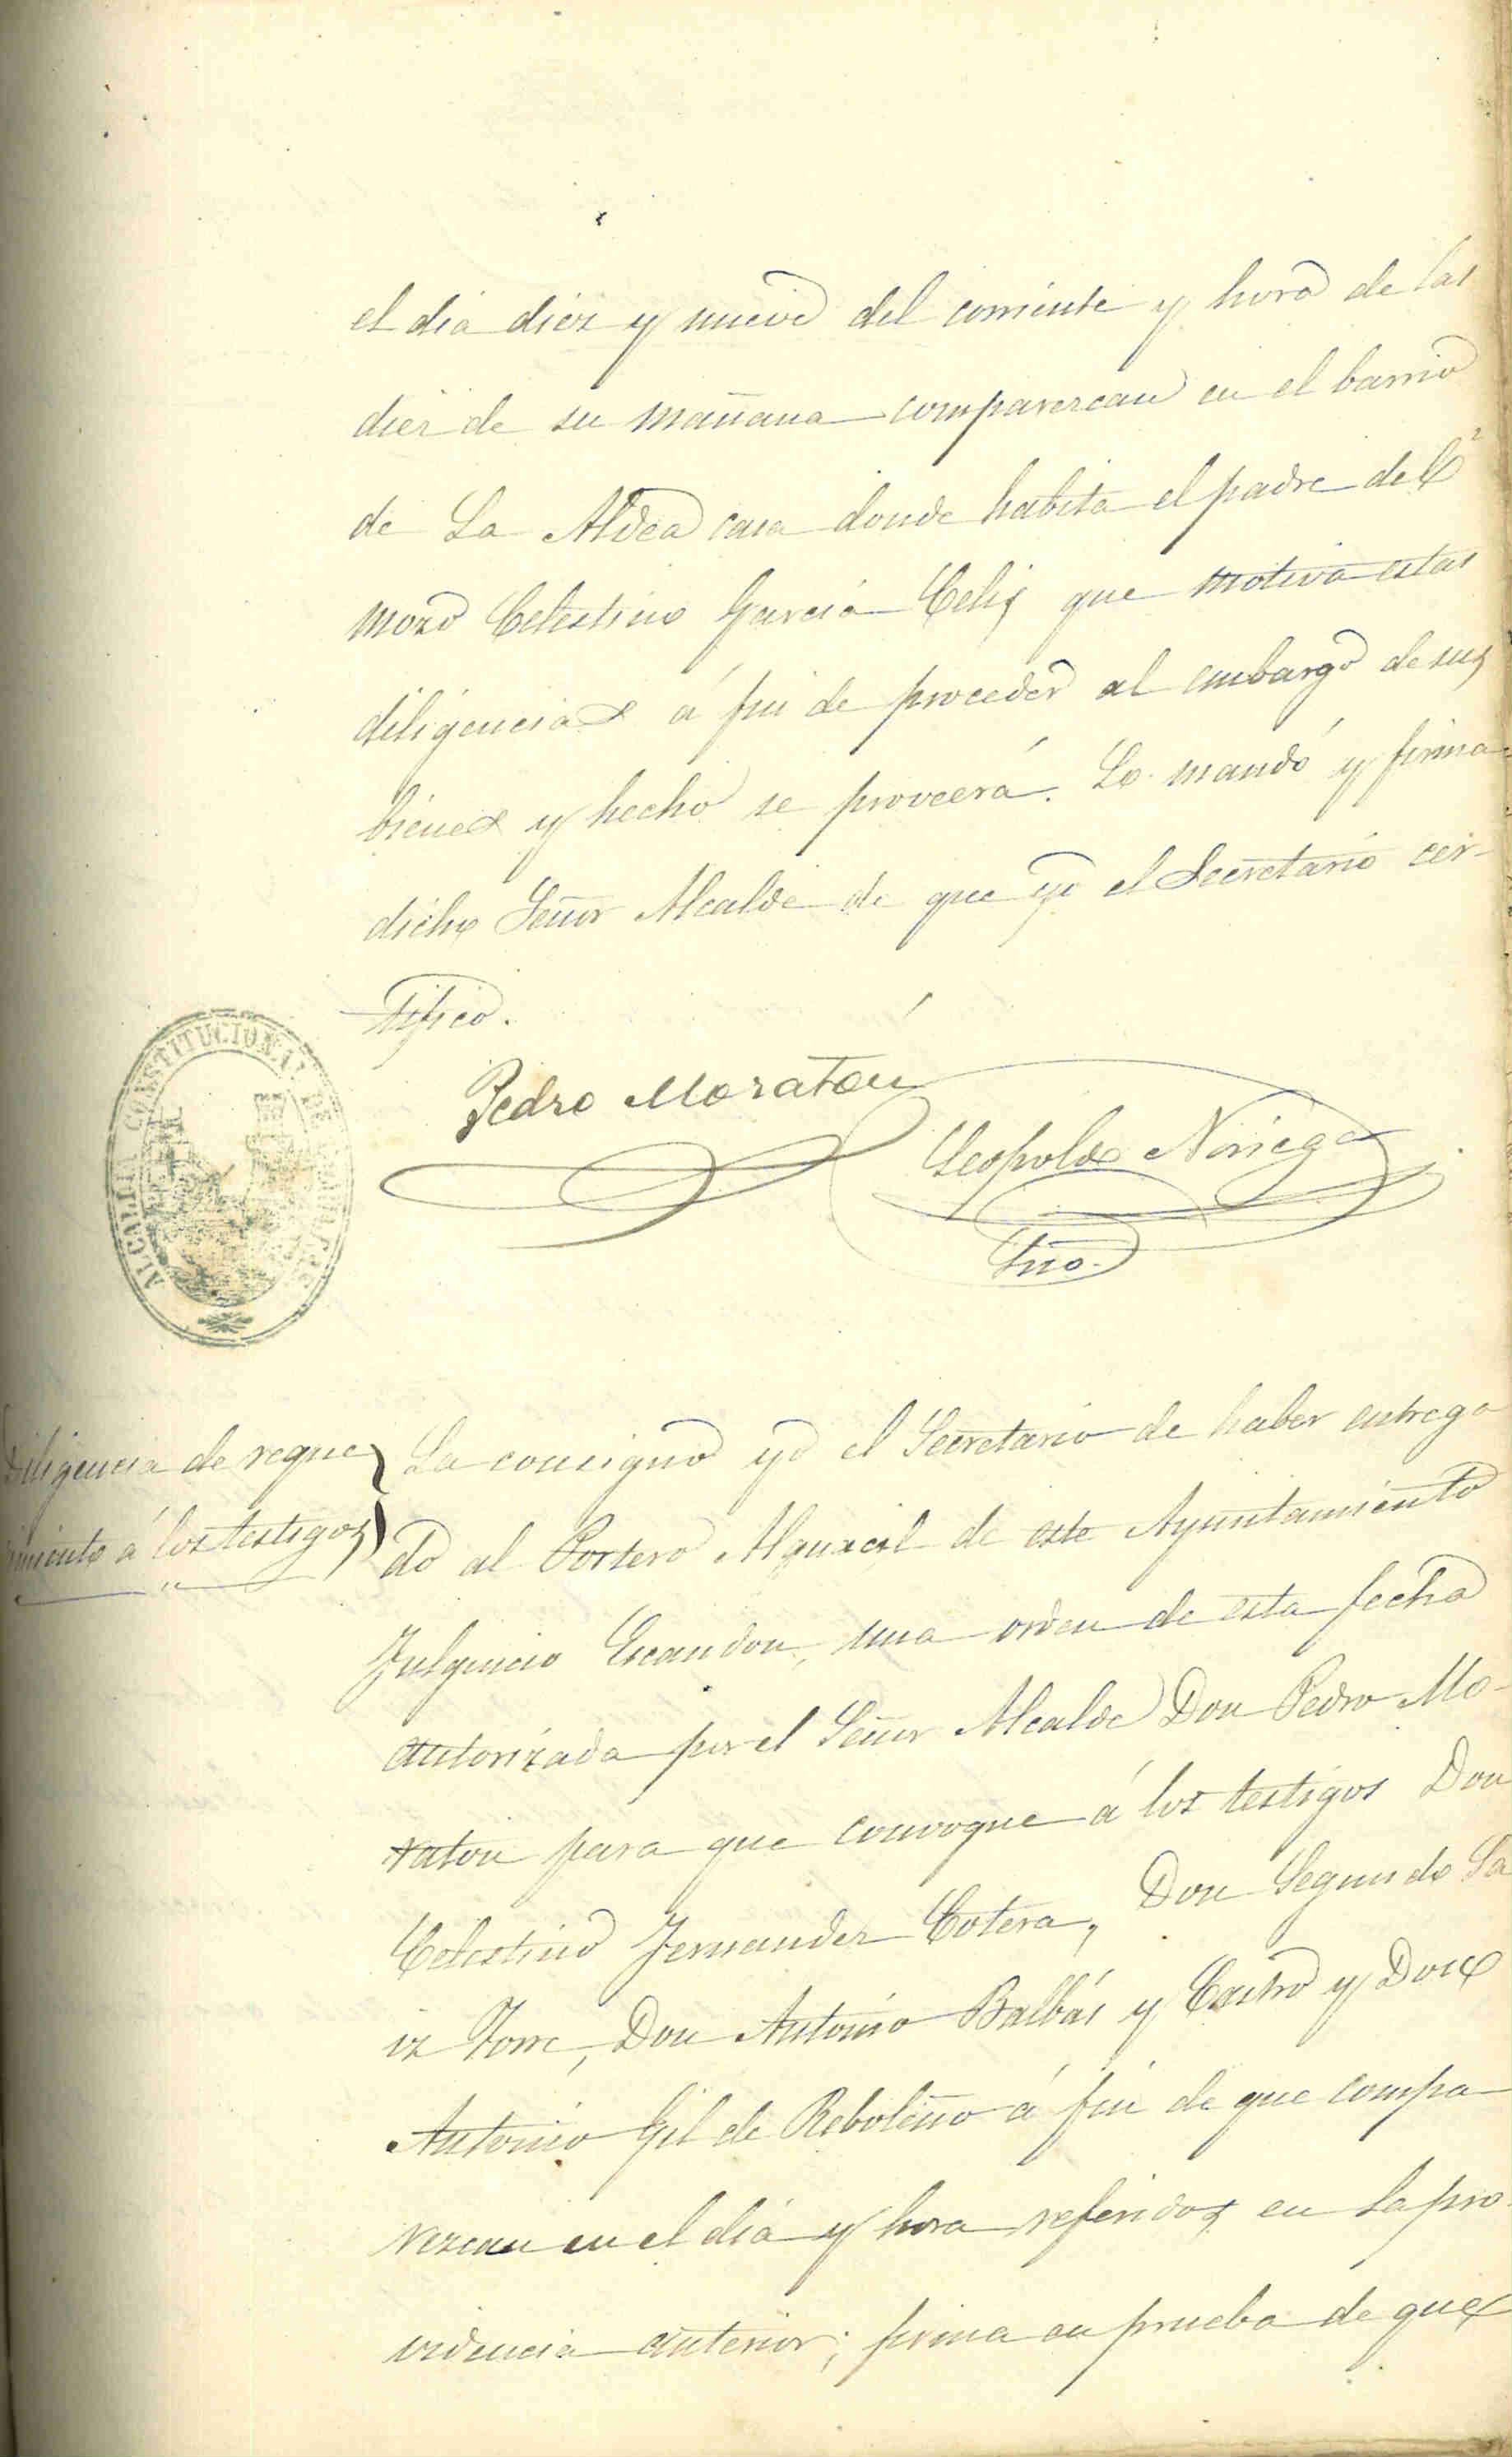 el dia diez y nueve del corriente y hora de las
diez de su mañana comparezcan en el barrio
de La Aldea casa donde habita el padre del
mozo Celestino García Celis que motiva estas
diligencias á fin de proceder al embargo de sus
bienes y hecho se proveerá. Lo mandó y firma
dicho Señor Alcalde de que yo el Secretario cer-
tifico.
ALCALDIA CONSTITUCIONAL DE
Pedro Moratón
Leopoldo Noriega
Srio.
Diligencia de reque
rimiento á los testigos
La consigno yo el Secretario de haber entrega
do al Portero Alguacil de este Ayuntamiento
Fulgencio Escandon, una orden de esta fecha
autorizada por el Señor Alcalde Don Pedro Mo-
raton para que convoque á los testigos Don
Celestino Fernandez Cotera, Don Segundo Sa
iz Torre, Don Antonio Balbás y Castro y Don
Antonio Gil de Reboleño á fin de que compa
rezcan en el dia y hora referidos en la pro
videncia anterior; firma en prueba de que